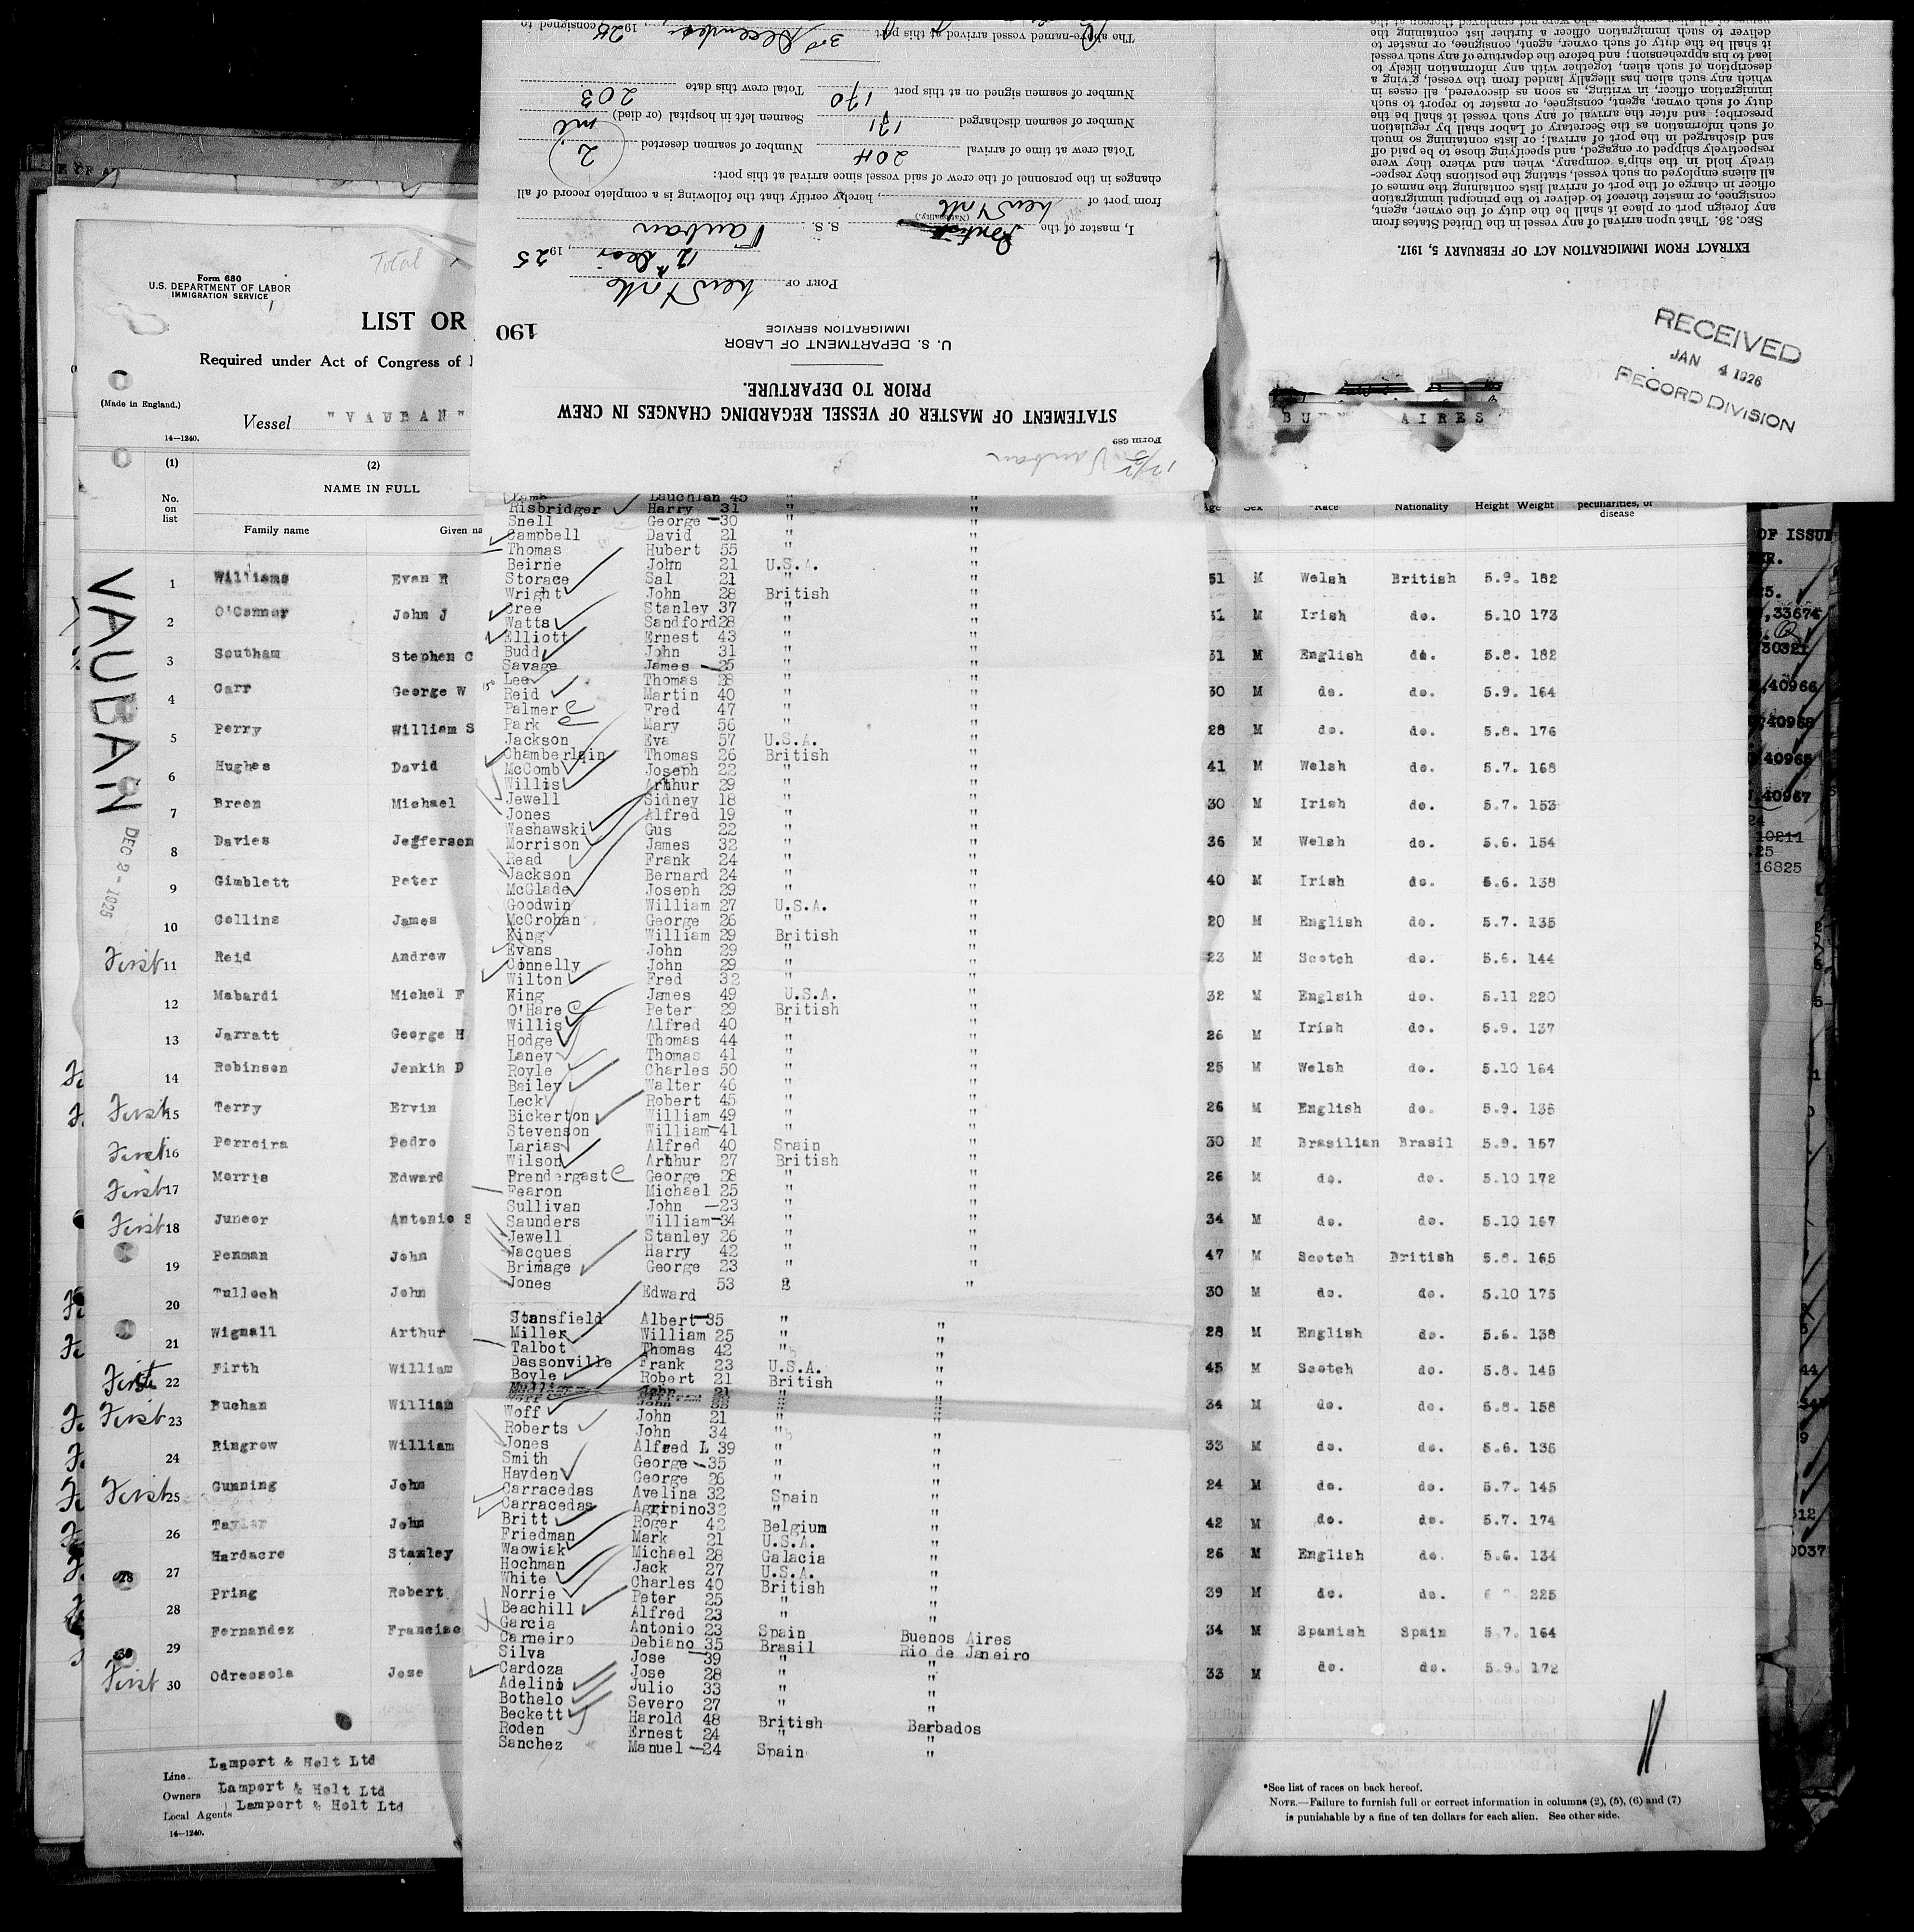 Form 680
U.S. DEPARTMENT OF LABOR
IMMIGRATION SERVICE
Total
LIST OR
Required under Act of Congress of
(Made in England.)
Vessel "VAUBAN"
14—1240.
(1) (2)
No. on list
NAME IN FULL
Family name Given na
VAUBAN
DEC 2 - 1925
1 Williams Evan R
2 O'Connor John J
3 Southam Stephen C
4 Carr George W
5 Perry William S
6 Hughes David
7 Breen Michael
8 Davies Jefferson
9 Gimblett Peter
10 Collins James
First 11 Reid Andrew
12 Mabardi Michel F
13 Jarratt George H
14 Robinson Jenkin D
First 15 Terry Ervin
First 16 Perreira Pedro
First 17 Morris Edward
First 18 Juneor Antonio S
19 Penman John
20 Tulloch John
21 Wignall Arthur
First 22 Firth William
First 23 Buchan William
24 Ringrow William
First 25 Gunning John
26 Taylor John
27 Hardacre Stanley
28 Pring Robert
29 Fernandez Francisc
First 30 Odressola Jose
Line Lamport & Holt Ltd
Owners Lamport & Holt Ltd
Local Agents Lamport & Holt Ltd
14—1240.
12/3/25 Vauban
Form 689
STATEMENT OF MASTER OF VESSEL REGARDING CHANGES IN CREW
PRIOR TO DEPARTURE.
U. S. DEPARTMENT OF LABOR
IMMIGRATION SERVICE
190
PORT OF New York
12th Dec, 1925
I, master of the British S. S. Vauban
(Nationality.)
from port of New York, hereby certify that the following is a complete record of all
changes in the personnel of the crew of said vessel since arrival at this port:
Total crew at time of arrival 204 Number of seamen deserted 2
Number of seamen discharged 171 Seamen left in hospital (or died) nil
Number of seamen signed on at this port 170 Total crew this date 203
The above-named vessel arrived at this port 3rd December, 1925 consigned to
EXTRACT FROM IMMIGRATION ACT OF FEBRUARY 5, 1917.
SEC. 36. That upon arrival of any vessel in the United States from
any foreign port or place it shall be the duty of the owner, agent,
consignee, or master thereof to deliver to the principal immigration
officer in charge of the port of arrival lists containing the names of
all aliens employed on such vessel, stating the positions they respec-
tively hold in the ship's company, when and where they were
respectively shipped or engaged, and specifying those to be paid off
and discharged in the port of arrival; or lists containing so much
of such information as the Secretary of Labor shall by regulation
prescribe; and after the arrival of any such vessel it shall be the
duty of such owner, agent, consignee, or master to report to such
immigration officer, in writing, as soon as discovered, all cases in
which any such alien has illegally landed from the vessel, giving a
description of such alien, together with any information likely to
lead to his apprehension; and before the departure of any such vessel
it shall be the duty of such owner, agent, consignee, or master to
deliver to such immigration officer a further list containing the
names of all alien employees who were not employed thereon at the
RECEIVED
JAN 4 1926
RECORD DIVISION
BU AIRES
Lamb Lauchlan 45 " "
Risbridger Harry 31 " "
Snell George 30 " "
Campbell David 21 " "
Thomas Hubert 55 " "
Beirne John 21 U.S.A. "
Storace Sal 21 " "
Wright John 28 British "
Cree Stanley 37 " "
Watts Sandford 28 " "
Elliott Ernest 43 " "
Budd John 31 " "
Savage James 25 " "
Lee Thomas 28 " "
Reid Martin 40 " "
Palmer Fred 47 " "
Park Mary 56 " "
Jackson Eva 57 U.S.A. "
Chamberlain Thomas 26 British "
McComb Joseph 22 " "
Willis Arthur 29 " "
Jewell Sidney 18 " "
Jones Alfred 19 " "
Washawski Gus 22 " "
Morrison James 32 " "
Read Frank 24 " "
Jackson Bernard 24 " "
McGlade Joseph 29 " "
Goodwin William 27 U.S.A. "
McCrohan George 26 " "
King William 29 British "
Evans John 29 " "
Connelly John 29 " "
Wilton Fred 32 " "
King James 49 U.S.A. "
O'Hare Peter 29 British "
Willis Alfred 40 " "
Hodge Thomas 44 " "
Laney Thomas 41 " "
Royle Charles 50 " "
Bailey Walter 46 " "
Leck Robert 45 " "
Bickerton William 49 " "
Stevenson William 41 " "
Larias Alfred 40 Spain "
Wilson Arthur 27 British "
Prendergast George 28 " "
Fearon Michael 25 " "
Sullivan John 23 " "
Saunders William 34 " "
Jewell Stanley 26 " "
Jacques Harry 42 " "
Brimage George 23 " "
Jones Edward 53 " "
Stansfield Albert 35 " "
Miller William 25 " "
Talbot Thomas 42 " "
Dassonville Frank 23 U.S.A. "
Boyle Robert 21 British "
Woff John 21 " "
Roberts John 34 " "
Jones Alfred L 39 " "
Smith George 35 " "
Hayden George 26 " "
Carracedas Avelina 32 Spain "
Carracedas Agripino 32 " "
Britt Roger 42 Belgium "
Friedman Mark 21 U.S.A. "
Waowiak Michael 28 Galacia "
Hochman Jack 27 U.S.A. "
White Charles 40 British "
Norrie Peter 25 " "
Beachill Alfred 23 " "
Garcia Antonio 23 Spain Buenos Aires
Carneiro Debiano 35 Brasil Rio de Janeiro
Silva Jose 39 " "
Cardoza Jose 28 " "
Adelino Julio 33 " "
Bothelo Severo 27 " "
Beckett Harold 48 British Barbados
Roden Ernest 24 " "
Sanchez Manuel 24 Spain "
Age Sex Race Nationality Height Weight peculiarities, or disease
51 M Welsh British 5.9. 182
31 M Irish do. 5.10 173
31 M English do. 5.8. 182
30 M do. do. 5.9. 164
28 M do. do. 5.8. 176
41 M Welsh do. 5.7. 168
30 M Irish do. 5.7. 153
36 M Welsh do. 5.6. 154
40 M Irish do. 5.6. 138
20 M English do. 5.7. 135
23 M Scotch do. 5.6. 144
32 M Englsih do. 5.11 220
26 M Irish do. 5.9. 137
25 M Welsh do. 5.10 164
26 M English do. 5.9. 135
30 M Brasilian Brasil 5.9. 157
26 M do. do. 5.10 172
34 M do. do. 5.10 167
47 M Scotch British 5.8. 165
30 M do. do. 5.10 175
28 M English do. 5.6. 138
45 M Scotch do. 5.8. 145
34 M do. do. 5.8. 158
33 M do. do. 5.6. 135
24 M do. do. 5.7. 145
42 M do. do. 5.7. 174
26 M English do. 5.6. 134
39 M do. do. 225
34 M Spanish Spain 5.7. 164
33 M do. do. 5.9. 172
*See list of races on back hereof.
NOTE.—Failure to furnish full or correct information in columns (2), (5), (6) and (7)
is punishable by a fine of ten dollars for each alien. See other side.
OF ISSUE
33674
30321
40966
40968
40965
40967
10211
16825